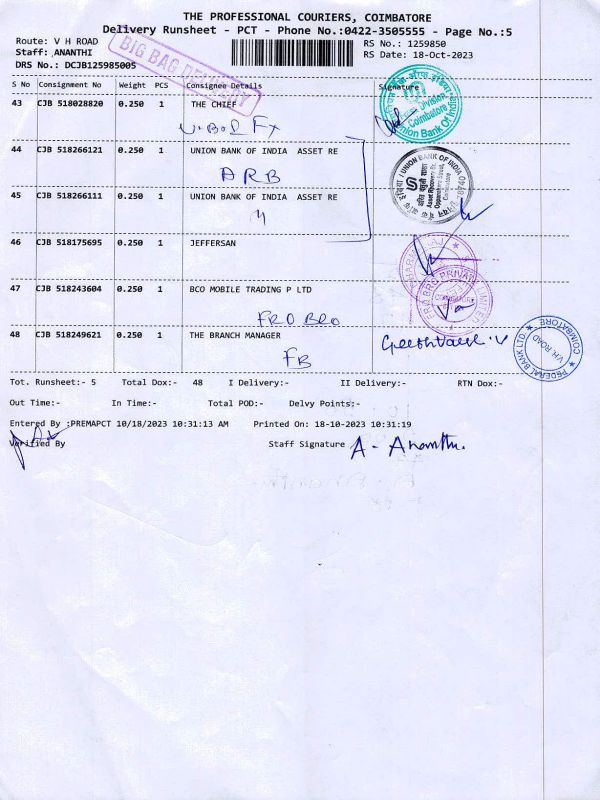 THE PROFESSIONAL COURIERS, COIMBATORE
Delivery Runsheet - PCT - Phone No.:0422-3505555 - Page No.:5
Route: V H ROAD
Staff: ANANTHI
DRS No.: DCJB125985005
BIG BAG DELIVERY
RS No.: 1259850
RS Date: 18-Oct-2023
S No Consignment No Weight PCS Consignee Details Signature
43 CJB 518028820 0.250 1 THE CHIEF
Coimbatore
Union Bank Of India
44 CJB 518266121 0.250 1 UNION BANK OF INDIA ASSET RE
ARB
UNION BANK OF INDIA
Asset Recovery Br.
Coimbatore
45 CJB 518266111 0.250 1 UNION BANK OF INDIA ASSET RE
46 CJB 518175695 0.250 1 JEFFERSAN
47 CJB 518243604 0.250 1 BCO MOBILE TRADING P LTD
FRO BRO
FRO BRO PRIVATE LIMITED
48 CJB 518249621 0.250 1 THE BRANCH MANAGER
FB
FEDERAL BANK LTD.
V.H. ROAD
COIMBATORE
Tot. Runsheet:- 5 Total Dox:- 48 I Delivery:- II Delivery:- RTN Dox:-
Out Time:- In Time:- Total POD:- Delvy Points:-
Entered By :PREMAPCT 10/18/2023 10:31:13 AM Printed On: 18-10-2023 10:31:19
Verified By Staff Signature A. Ananthi.